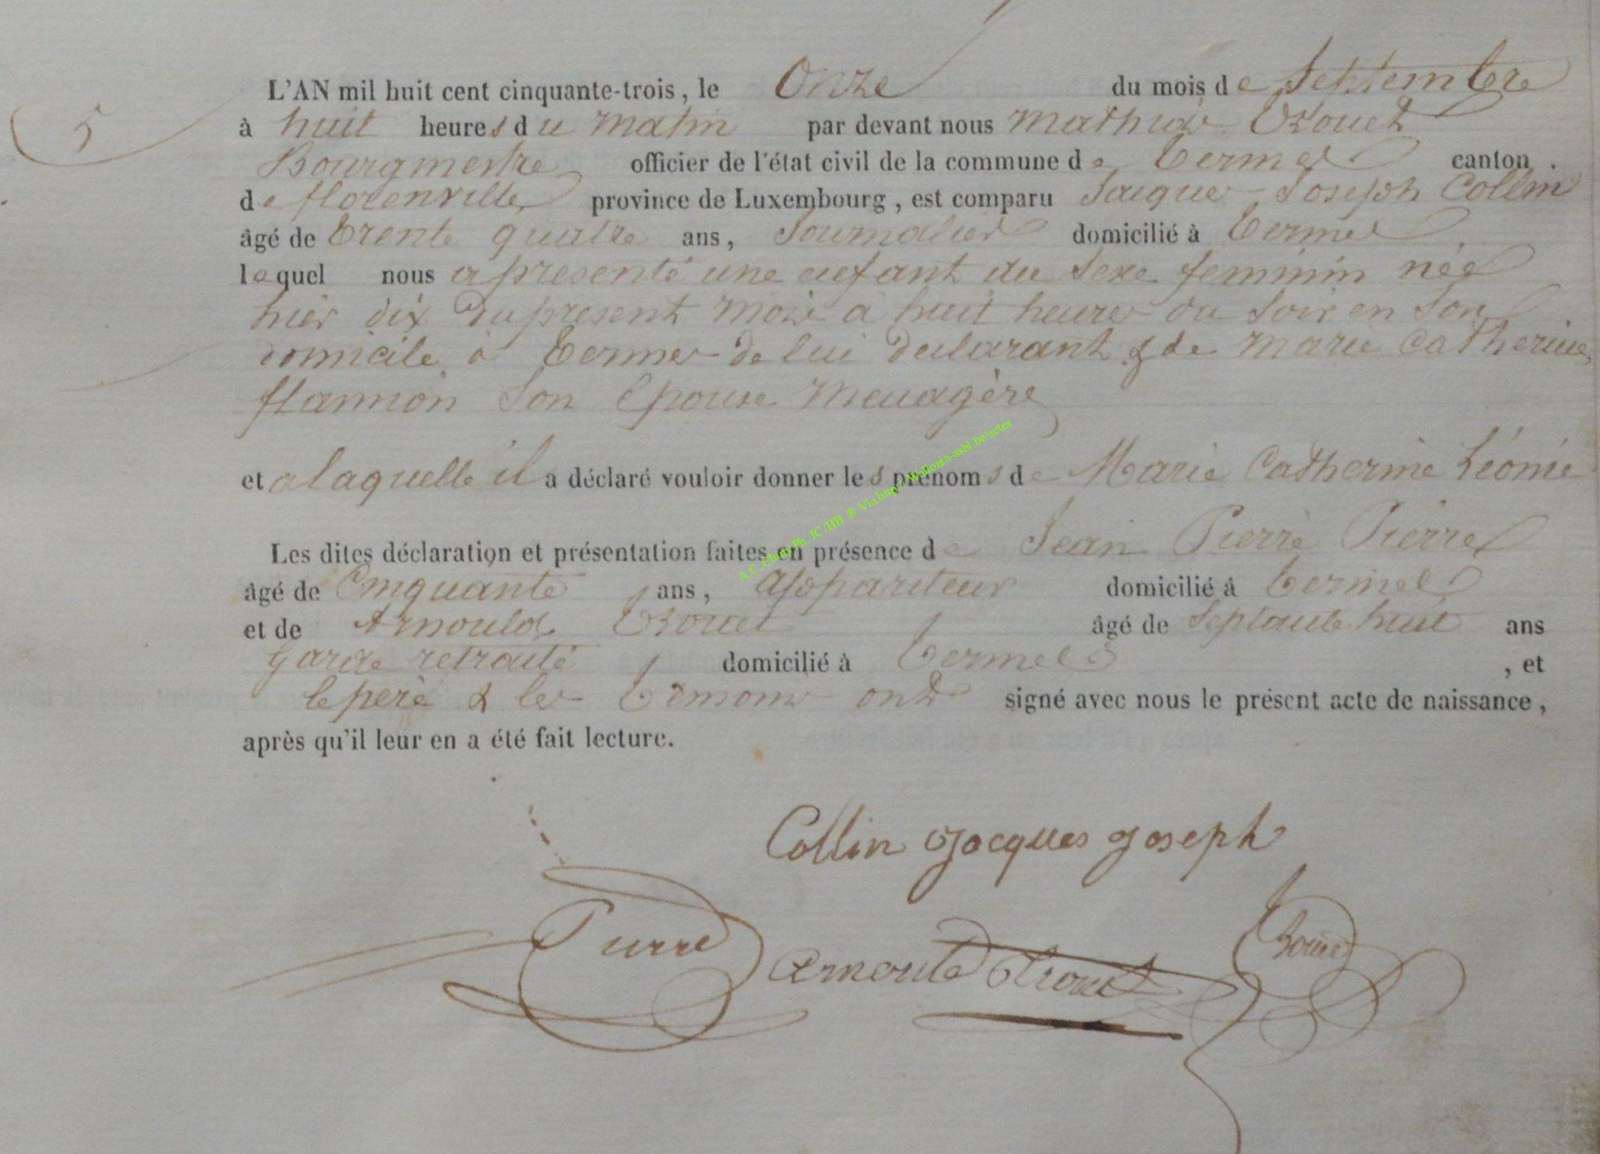 5
L'AN mil huit cent cinquante-trois, le Onze du mois de Septembre
à huit heures du matin par devant nous Mathias Trouet
Bourgmestre officier de l'état civil de la commune de Termes canton
de florenville province de Luxembourg, est comparu Jaique Joseph Collin
âgé de Trente quatre ans, Journalier domicilié à Termes
lequel nous a presenté une enfant du Sexe feminin née
hier dix du present mois à huit heures du Soir en Son
domicile à Termes de lui declarant & de Marie Catherine
flamion Son Epouse Menagère
et a laquelle il a déclaré vouloir donner les prénoms de Marie Catherine Léonie
Les dites déclaration et présentation faites en présence de Jean Pierre Pierre
âgé de Cinquante ans, Appariteur domicilié à Termes
et de Arnould Trouet âgé de Septante huit ans
Garde retraité domicilié à Termes, et
le père & les Temoins ont signé avec nous le présent acte de naissance,
après qu'il leur en a été fait lecture.
Collin Jacques Joseph
Pierre
Arnould Trouet
Trouet